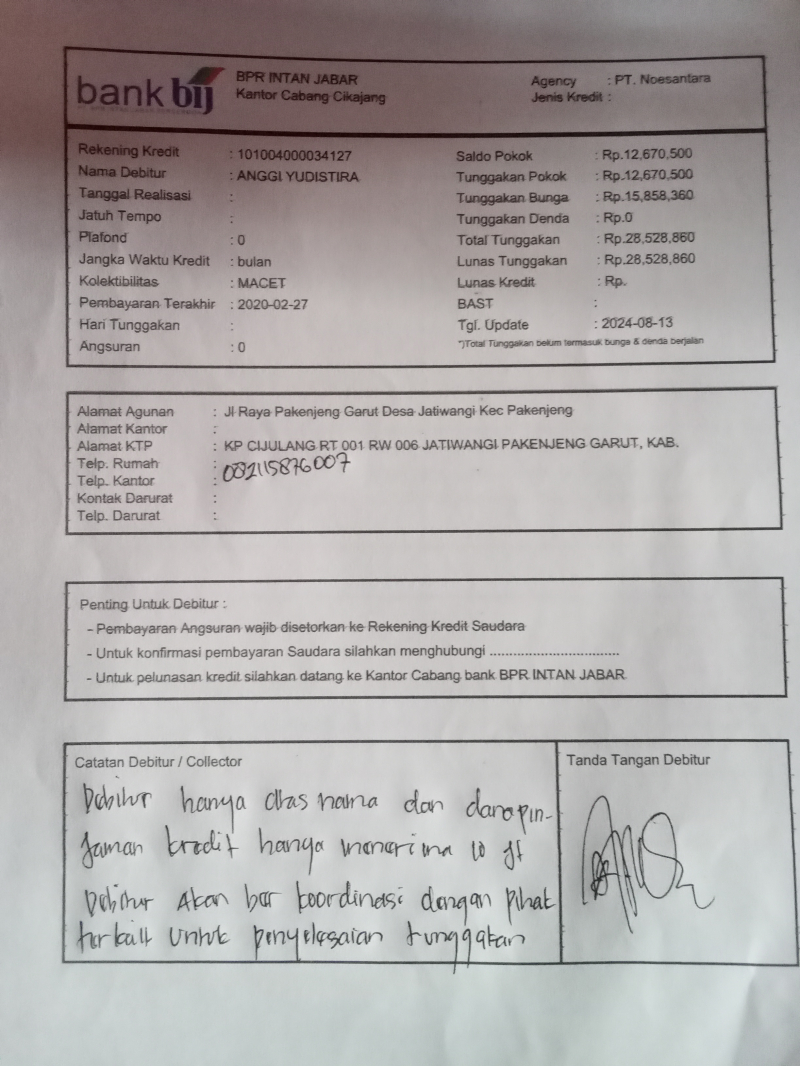 bank bij
BPR INTAN JABAR
Kantor Cabang Cikajang
Agency : PT. Noesantara
Jenis Kredit :
Rekening Kredit : 101004000034127
Nama Debitur : ANGGI YUDISTIRA
Tanggal Realisasi :
Jatuh Tempo :
Plafond : 0
Jangka Waktu Kredit : bulan
Kolektibilitas : MACET
Pembayaran Terakhir : 2020-02-27
Hari Tunggakan :
Angsuran : 0
Saldo Pokok : Rp.12,670,500
Tunggakan Pokok : Rp.12,670,500
Tunggakan Bunga : Rp.15,858,360
Tunggakan Denda : Rp.0
Total Tunggakan : Rp.28,528,860
Lunas Tunggakan : Rp.28,528,860
Lunas Kredit : Rp.
BAST :
Tgl. Update : 2024-08-13
*)Total Tunggakan belum termasuk bunga & denda berjalan
Alamat Agunan : Jl Raya Pakenjeng Garut Desa Jatiwangi Kec Pakenjeng
Alamat Kantor :
Alamat KTP : KP CIJULANG RT 001 RW 006 JATIWANGI PAKENJENG GARUT, KAB.
Telp. Rumah : 082115876007
Telp. Kantor :
Kontak Darurat :
Telp. Darurat :
Penting Untuk Debitur :
- Pembayaran Angsuran wajib disetorkan ke Rekening Kredit Saudara
- Untuk konfirmasi pembayaran Saudara silahkan menghubungi .................................
- Untuk pelunasan kredit silahkan datang ke Kantor Cabang bank BPR INTAN JABAR
Catatan Debitur / Collector
Debitur hanya atas nama dan dana pin-
jaman kredit hanya menerima 10 jt
Debitur Akan ber koordinasi dengan Pihak
terkait untuk penyelesaian tunggakan
Tanda Tangan Debitur